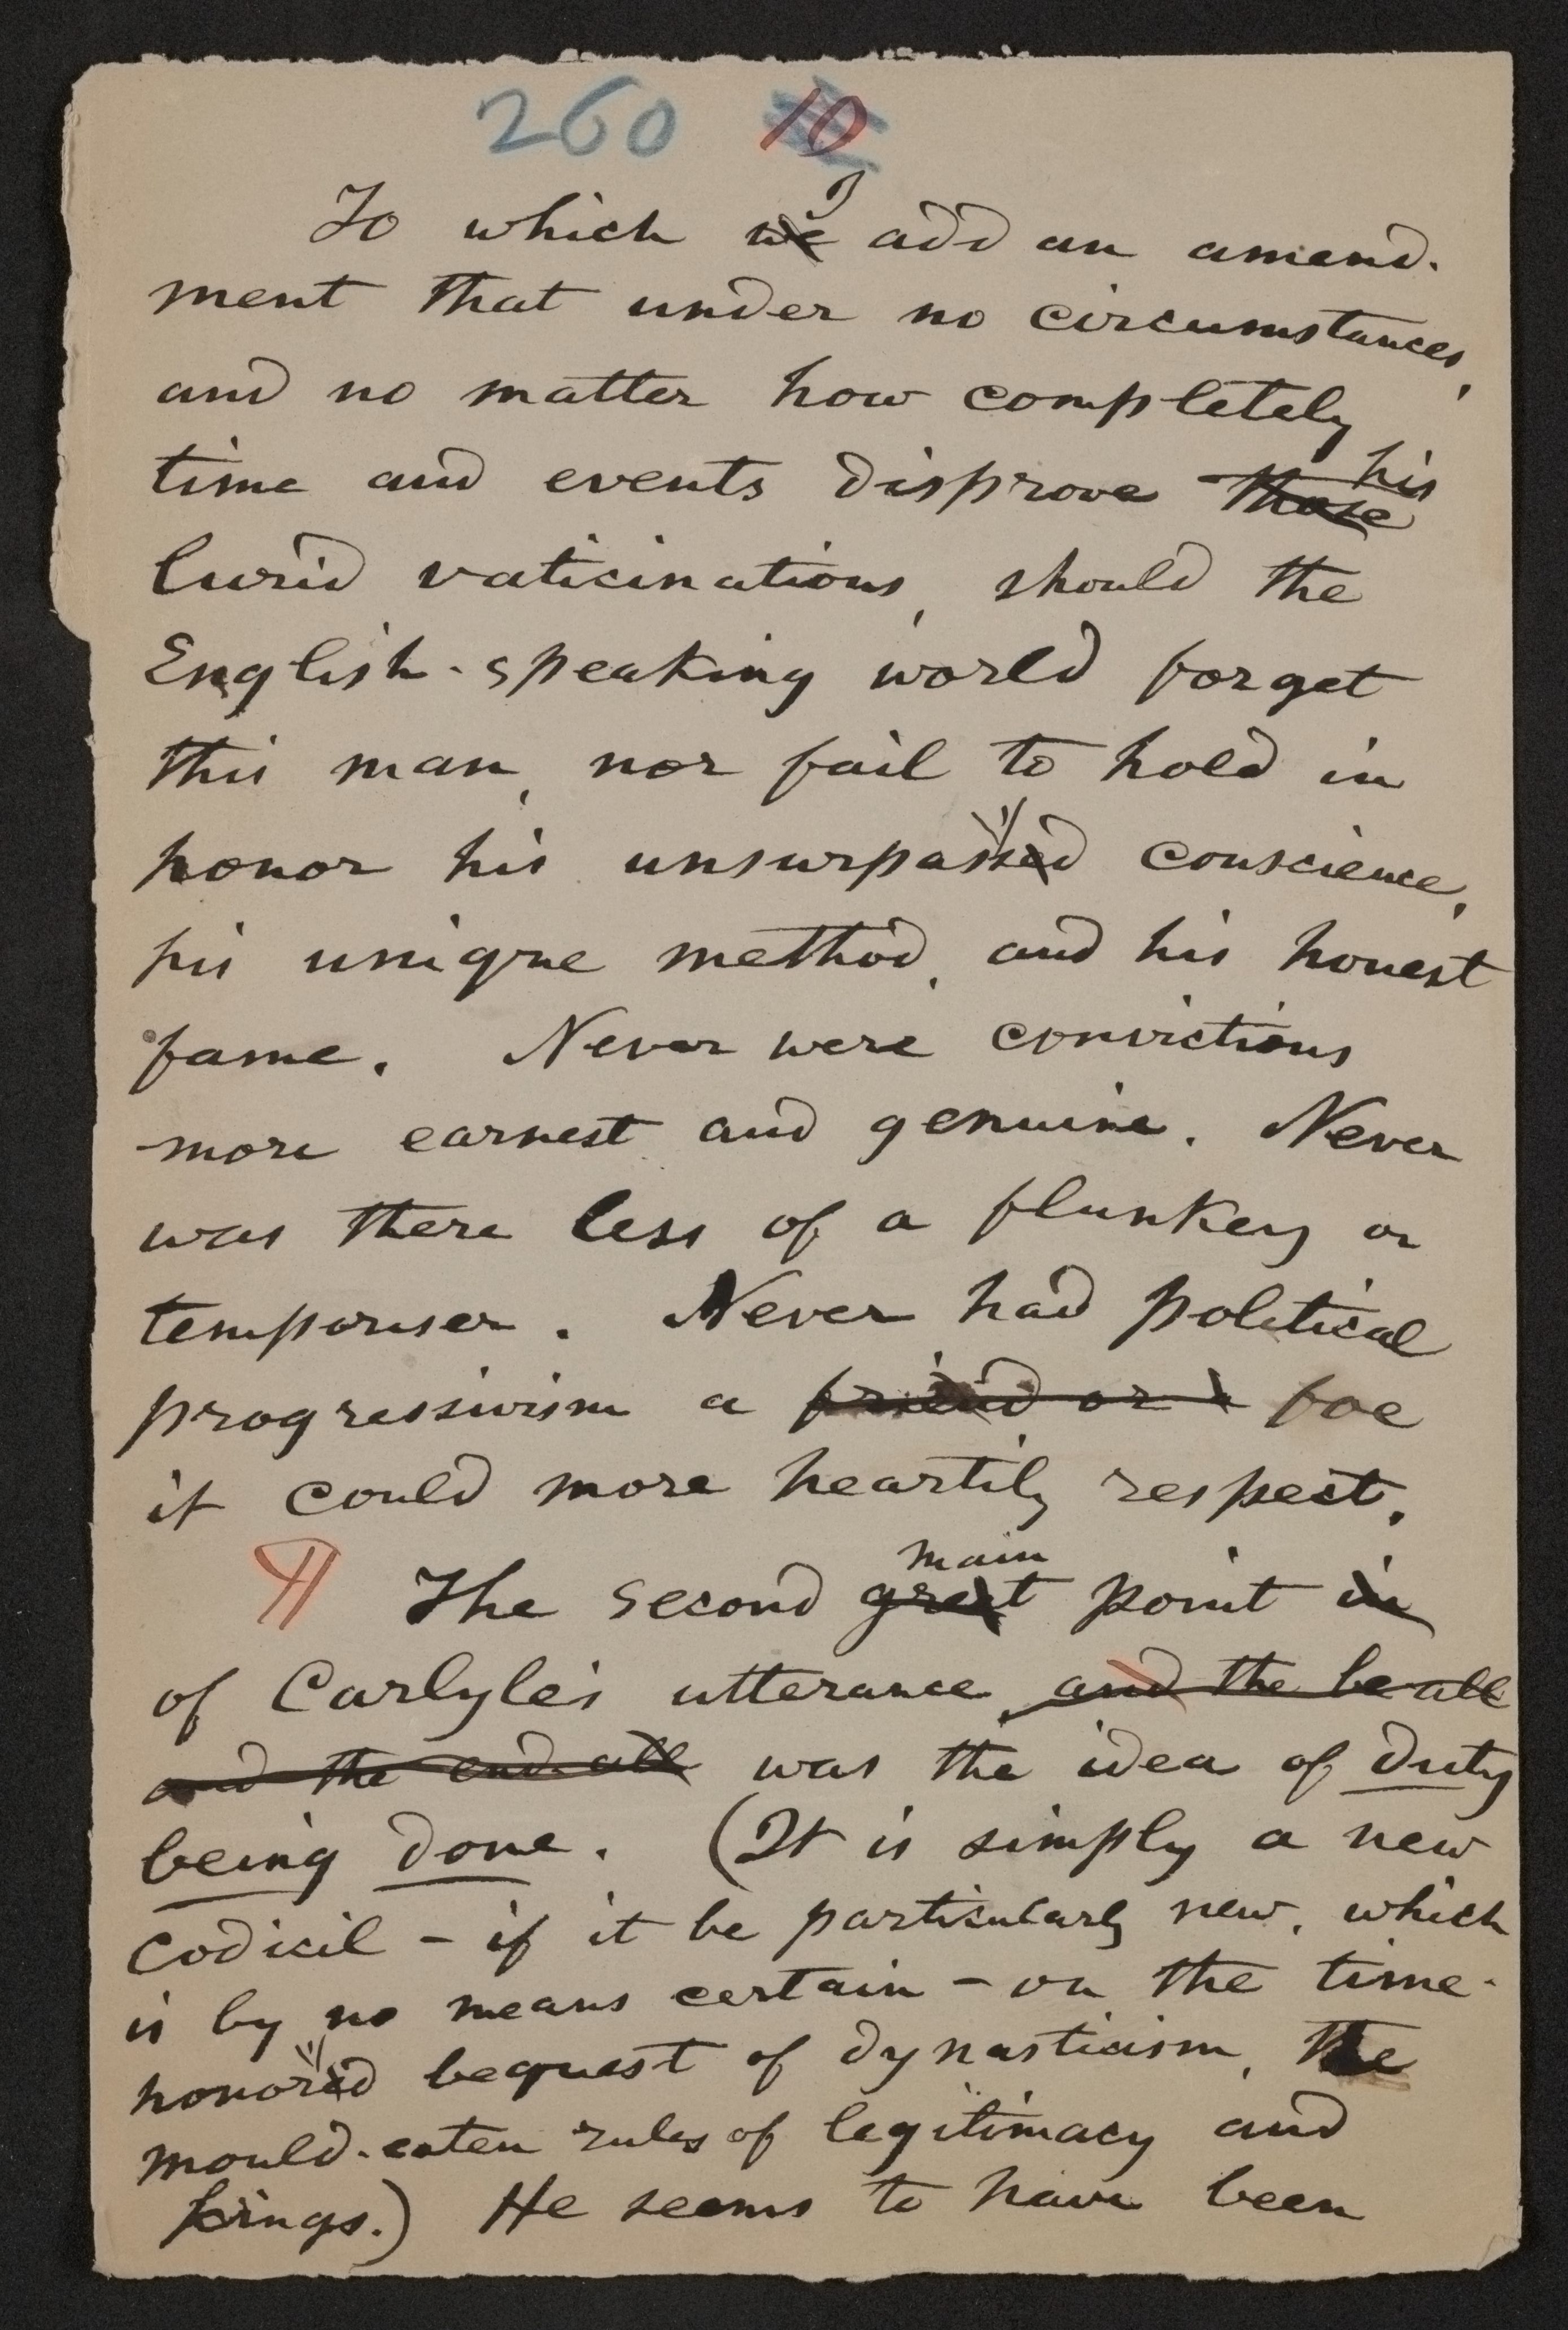 260 10
To which ~~we~~ I add an amend-
ment that under no circumstances,
and no matter how completely
time and events disprove ~~those~~ his
lurid vaticinations, should the
English-speaking world forget
this man, nor fail to hold in
honor his unsurpass'd conscience,
his unique method, and his honest
fame. Never were convictions
more earnest and genuine. Never
was there less of a flunkey or
temporiser. Never had political
progressivism a ~~friend or a~~ foe
it could more heartily respect.
¶ The second ~~great~~ main point ~~in~~
of Carlyle's utterance ~~and the be-all~~
~~and the end-all~~ was the idea of duty
being done. (It is simply a new
codicil – if it be particularly new, which
is by no means certain – on the time-
honor'd bequest of dynasticism, the
mould-eaten rules of legitimacy and
kings.) He seems to have been